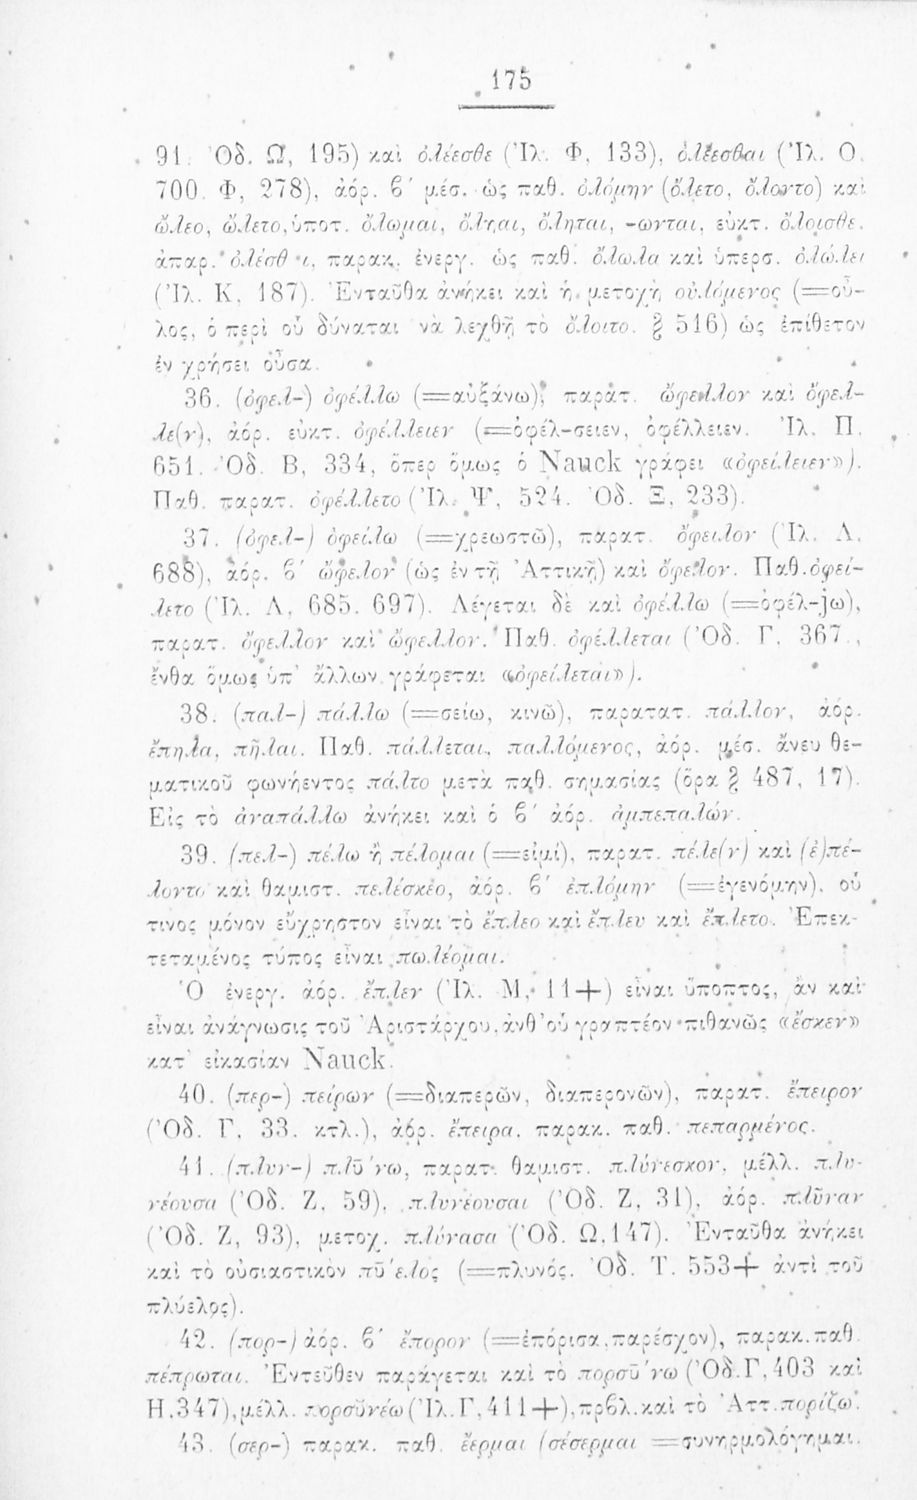 175
91. Ὀδ. Ω, 195) καὶ ὀλέεσθε (Ἰλ. Φ, 133), ὀλέεσθαι (Ἰλ. Ο.
700. Φ, 278), ἀόρ. β΄ μέσ. ὡς παθ. ὀλόμην (ὄλετο, ὄλοντο) καὶ
ὤλεο, ὤλετο, ὑποτ. ὄλωμαι, ὄληαι, ὄληται, -ωνται, εὐκτ. ὄλοισθε.
ἀπαρ. ὀλέσθαι, παρακ. ἐνεργ. ὡς παθ. ὄλωλα καὶ ὑπερσ. ὀλώλει
(Ἰλ. Κ, 187). Ἐνταῦθα ἀνήκει καὶ ἡ μετοχὴ οὐλόμενος (=οὖ-
λος, ὁ περὶ οὗ δύναται νὰ λεχθῇ τὸ ὄλοιτο. § 516) ὡς ἐπίθετον
ἐν χρήσει οὖσα.
36. (ὀφελ-) ὀφέλλω (=αὐξάνω), παρατ. ὤφελλον καὶ ὄφελ-
λε(ν), ἀόρ. εὐκτ. ὀφέλλειεν (=ὀφέλ-σειεν, ὀφέλλειεν. Ἰλ. Π.
651. Ὀδ. Β, 334, ὅπερ ὅμως ὁ Nauck γράφει «ὀφείλειεν»).
Παθ. παρατ. ὀφέλλετο (Ἰλ. Ψ, 524. Ὀδ. Ξ, 233).
37. (ὀφελ-) ὀφείλω (=χρεωστῶ), παρατ. ὄφειλον (Ἰλ. Λ.
688), ἀόρ. β΄ ὤφελον (ὡς ἐν τῇ Ἀττικῇ) καὶ ὄφελον. Παθ. ὀφεί-
λετο (Ἰλ. Λ, 685. 697). Λέγεται δὲ καὶ ὀφέλλω (=ὀφέλ-jω),
παρατ. ὄφελλον καὶ ὤφελλον. Παθ. ὀφέλλεται (Ὀδ. Γ, 367.,
ἔνθα ὅμως ὑπ' ἄλλων γράφεται «ὀφείλεται»).
38. (παλ-) πάλλω (=σείω, κινῶ), παρατατ. πάλλον, ἀόρ.
ἔπηλα, πῆλαι. Παθ. πάλλεται, παλλόμενος, ἀόρ. μέσ. ἄνευ θε-
ματικοῦ φωνήεντος πάλτο μετὰ παθ. σημασίας (ὅρα § 487, 17).
Εἰς τὸ ἀναπάλλω ἀνήκει καὶ ὁ β΄ ἀόρ. ἀμπεπαλών.
39. (πελ-) πέλω ἢ πέλομαι (=εἰμί), παρατ. πέλε(ν) καὶ (ἐ)πέ-
λοντο καὶ θαμιστ. πελέσκεο, ἀόρ. β΄ ἐπλόμην (=ἐγενόμην), οὗ
τινος μόνον εὔχρηστον εἶναι τὸ ἔπλεο καὶ ἔπλευ καὶ ἔπλετο. Ἐπεκ-
τεταμένος τύπος εἶναι πωλέομαι.
Ὁ ἐνεργ. ἀόρ. ἔπλεν (Ἰλ. Μ, 11+) εἶναι ὕποπτος, ἂν καὶ
εἶναι ἀνάγνωσις τοῦ Ἀριστάρχου, ἀνθ' οὗ γραπτέον πιθανῶς «ἔσκεν»
κατ' εἰκασίαν Nauck.
40. (περ-) πείρων (=διαπερῶν, διαπερονῶν), παρατ. ἔπειρον
(Ὀδ. Γ, 33. κτλ.), ἀόρ. ἔπειρα, παρακ. παθ. πεπαρμένος.
41. (πλυν-) πλῡ́νω, παρατ. θαμιστ. πλύνεσκον, μέλλ. πλυ-
νέουσα (Ὀδ. Ζ, 59), πλυνέουσαι (Ὀδ. Ζ, 31), ἀόρ. πλῦναν
(Ὀδ. Ζ, 93), μετοχ. πλύνασα (Ὀδ. Ω, 147). Ἐνταῦθα ἀνήκει
καὶ τὸ οὐσιαστικὸν πῡ́ελος (=πλυνός. Ὀδ. Τ. 553+ ἀντὶ τοῦ
πλύελος).
42. (πορ-) ἀόρ. β΄ ἔπορον (=ἐπόρισα, παρέσχον), παρακ. παθ.
πέπρωται. Ἐντεῦθεν παράγεται καὶ τὸ πορσῡ́νω (Ὀδ. Γ, 403 καὶ
Η. 347), μέλλ. πορσῡνέω (Ἰλ. Γ, 411+), πρβλ. καὶ τὸ Ἀττ. πορίζω.
43. (σερ-) παρακ. παθ. ἔερμαι (σέσερμαι =συνηρμολόγημαι.